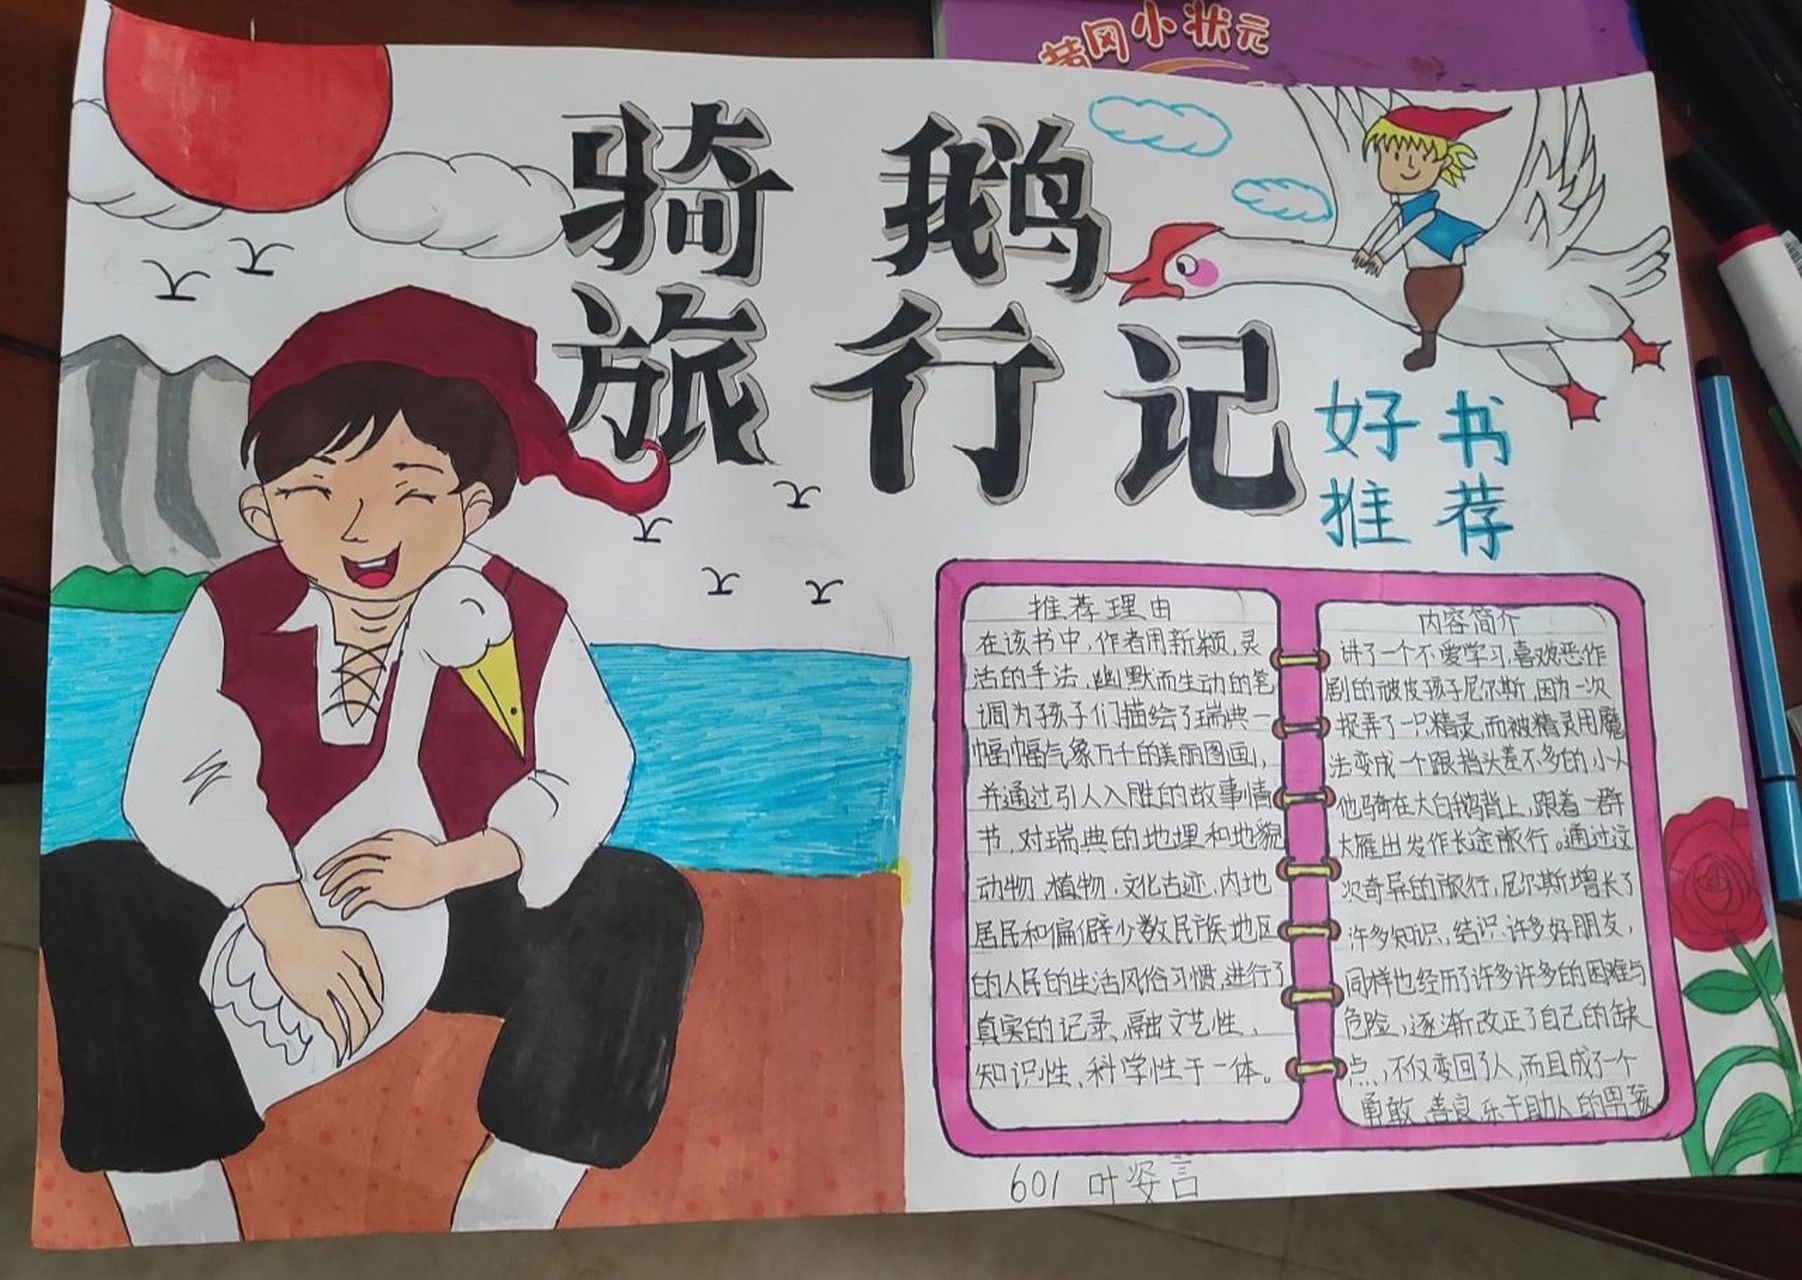 黄冈小状元
骑鹅
旅行记
好书
推荐
推荐理由
在该书中,作者用新颖,灵
活的手法,幽默而生动的笔
调为孩子们描绘了瑞典一
幅幅气象万千的美丽图画,
并通过引人入胜的故事情
节,对瑞典的地理和地貌
动物,植物,文化古迹,内地
居民和偏僻少数民族地区
的人民的生活风俗习惯,进行了
真实的记录、融文艺性、
知识性、科学性于一体。
内容简介
讲了一个不爱学习,喜欢恶作
剧的顽皮孩子尼尔斯,因为一次
捉弄了一只精灵,而被精灵用魔
法变成一个跟拇指头差不多的小人
他骑在大白鹅背上,跟着一群
大雁出发作长途旅行。通过这
次奇异的旅行,尼尔斯增长了
许多知识,结识许多好朋友,
同样也经历了许多许多的困难与
危险,逐渐改正了自己的缺
点,不仅变回了人,而且成了一个
勇敢、善良、乐于助人的男孩
601 叶姿言